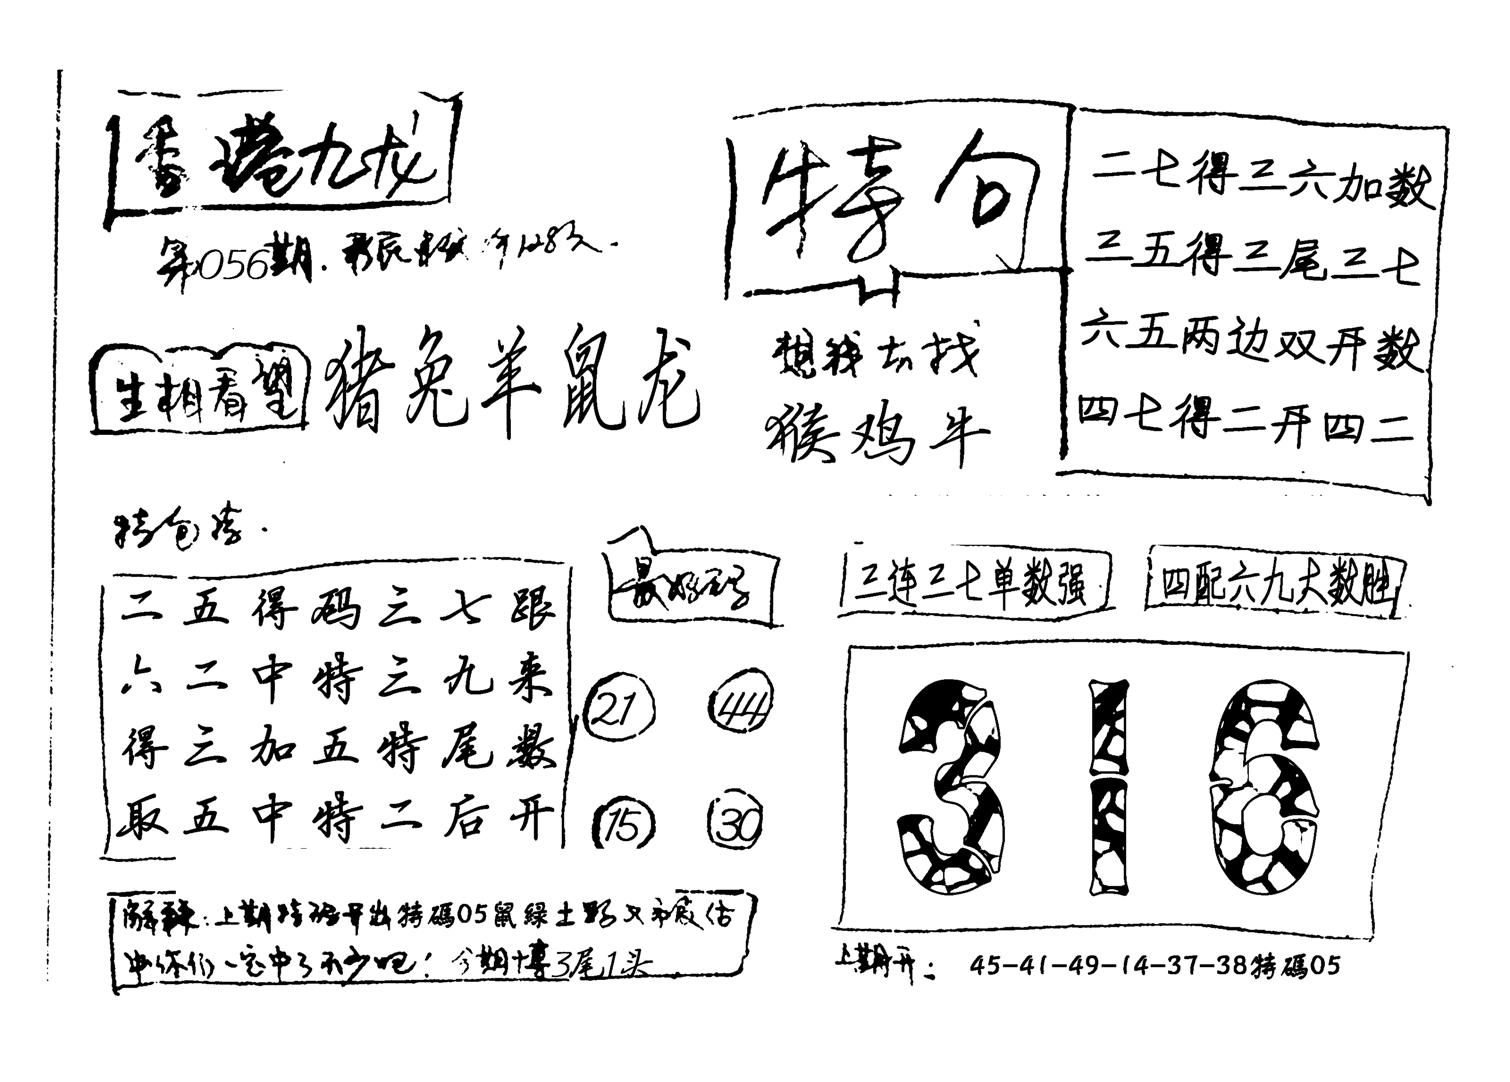 香港九龙
第056期.
特句
二七得三六加数
三五得三尾三七
六五两边双开数
四七得二开四二
生相看望
猪兔羊鼠龙
想钱去找
猴鸡牛
二五得码三七跟
六二中特三九来
得三加五特尾数
取五中特二后开
最好码
21 44
15 30
三连三七单数强
四配六九大数胜
316
上期特码开出特碼05鼠緑土
你们一定中了不少吧！今期博3尾1头
上期开：45-41-49-14-37-38特碼05